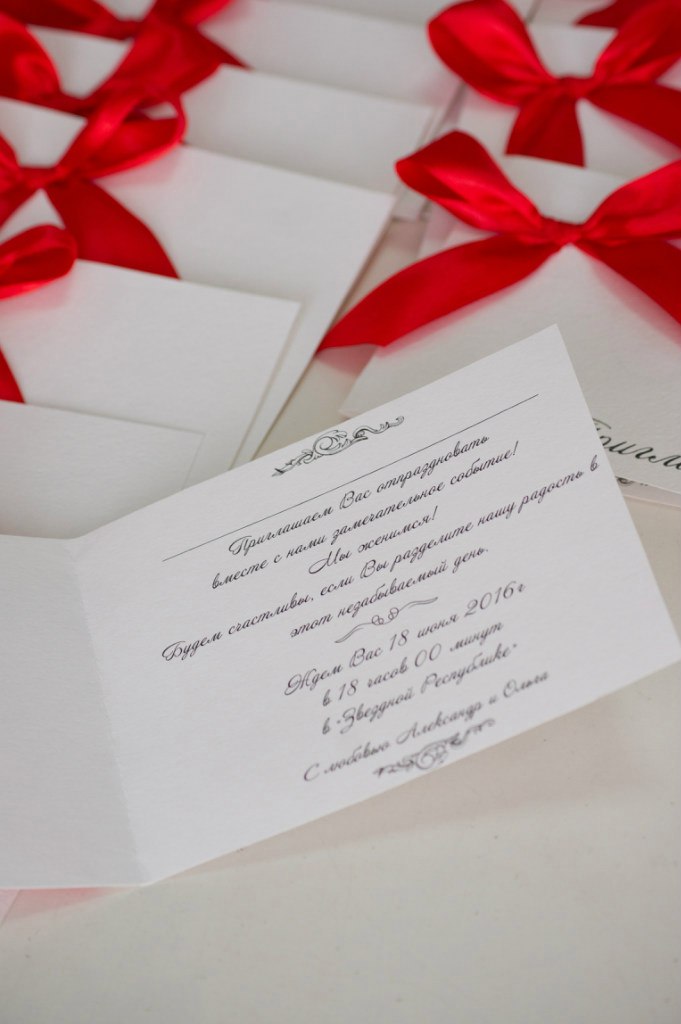 Приглашаем Вас отпраздновать
вместе с нами замечательное событие!
Мы женимся!
Будем счастливы, если Вы разделите нашу радость в
этот незабываемый день.
Ждем Вас 18 июня 2016г
в 18 часов 00 минут
в "Звездной Республике"
С любовью Александр и Ольга